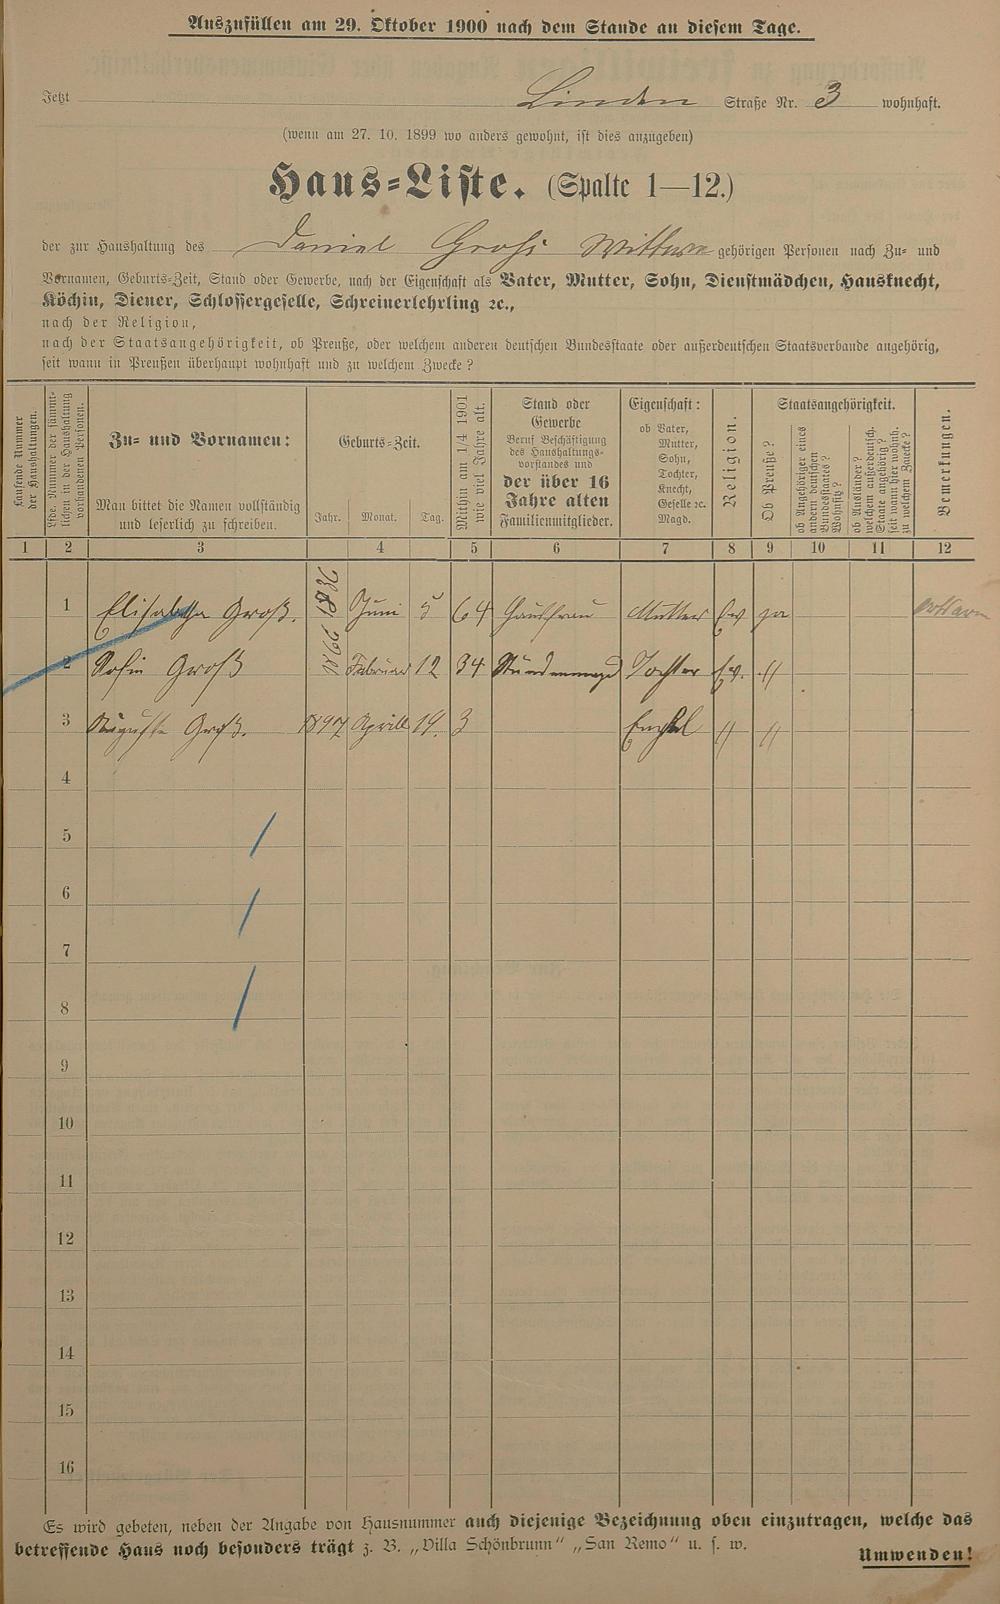 Auszufüllen am 29. Oktober 1900 nach dem Stande an diesem Tage.
Jetzt Linden Straße Nr. 3 wohnhaft.
(wenn am 27. 10. 1899 wo anders gewohnt, ist dies anzugeben)
Haus-Liste. (Spalte 1—12.)
der zur Haushaltung des Daniel Groß Wittwe gehörigen Personen nach Zu- und
Vornamen, Geburts-Zeit, Stand oder Gewerbe, nach der Eigenschaft als Vater, Mutter, Sohn, Dienstmädchen, Hausknecht,
Köchin, Diener, Schlossergeselle, Schreinerlehrling ꝛc.,
nach der Religion,
nach der Staatsangehörigkeit, ob Preuße, oder welchem anderen deutschen Bundesstaate oder außerdeutschen Staatsverbande angehörig,
seit wann in Preußen überhaupt wohnhaft und zu welchem Zwecke?
Laufende Nummer
der Haushaltungen.
Lfde. Nummer der sämmt-
lichen in der Haushaltung
vorhandenen Personen.
Zu- und Vornamen:
Man bittet die Namen vollständig
und leserlich zu schreiben.
Geburts-Zeit.
Jahr. Monat. Tag.
Mithin am 1/4 1901
wie viel Jahre alt.
Stand oder
Gewerbe
Beruf Beschäftigung
des Haushaltungs-
vorstandes und
der über 16
Jahre alten
Familienmitglieder.
Eigenschaft:
ob Vater,
Mutter,
Sohn,
Tochter,
Knecht,
Geselle ꝛc.
Magd.
Religion.
Staatsangehörigkeit.
Ob Preuße?
ob Angehöriger eines
andern deutschen
Bundesstaates?
Wohnsitz?
ob Ausländer?
welchem außerdeutsch.
Staate angehörig?
seit wann hier wohnh.
zu welchem Zwecke?
Bemerkungen.
1 2 3 4 5 6 7 8 9 10 11 12
1 Elisabetha Groß. 1836 Juni 5 64 Hausfrau Mutter Ev ja
2 Sofie Groß 1866 Februar 12 34 Tochter Ev. "
3 Auguste Groß. 1897 Aprill 19. 3 Enkel " "
4
5
6
7
8
9
10
11
12
13
14
15
16
Es wird gebeten, neben der Angabe von Hausnummer auch diejenige Bezeichnung oben einzutragen, welche das
betreffende Haus noch besonders trägt z. B. „Villa Schönbrunn" „San Remo" u. s. w.
Umwenden!